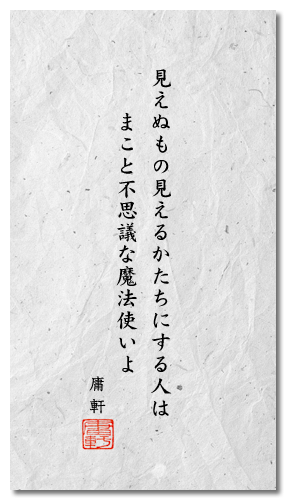 見えぬもの見えるかたちにする人は
まこと不思議な魔法使いよ
庸軒